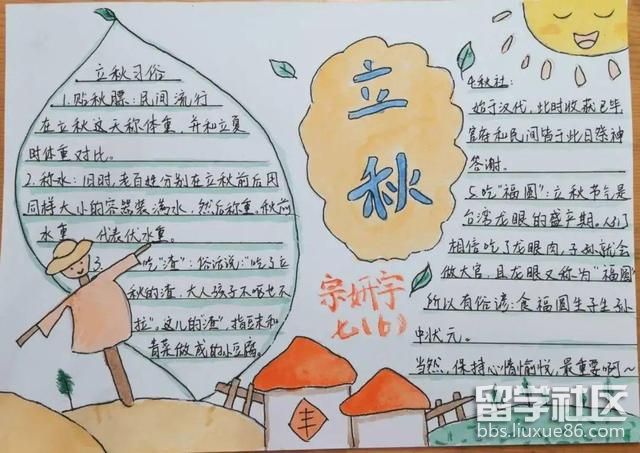 立秋习俗
1.贴秋膘:民间流行
在立秋这天称体重,并和立夏
时体重对比。
2.称水:旧时,老百姓分别在立秋前后用
同样大小的容器装满水,然后称重,秋前
水重 代表伏水重。
3. 吃"渣":俗话说:"吃了立
秋的渣,大人孩子不呕也不
拉"。这儿的"渣",指豆沫和
青菜做成的小豆腐。
立
秋
宗妍宇
七(6)
丰
4.秋社:
始于汉代,此时收获已毕
官府和民间皆于此日祭神
答谢。
5.吃"福圆":立秋节气是
台湾龙眼的盛产期。人们
相信吃了龙眼肉,子孙就会
做大官,且龙眼又称为"福圆"
所以有俗谚:食福圆生子生孙
中状元。
当然,保持心情愉悦,最重要啊~
留学社区
bbs.liuxue86.com